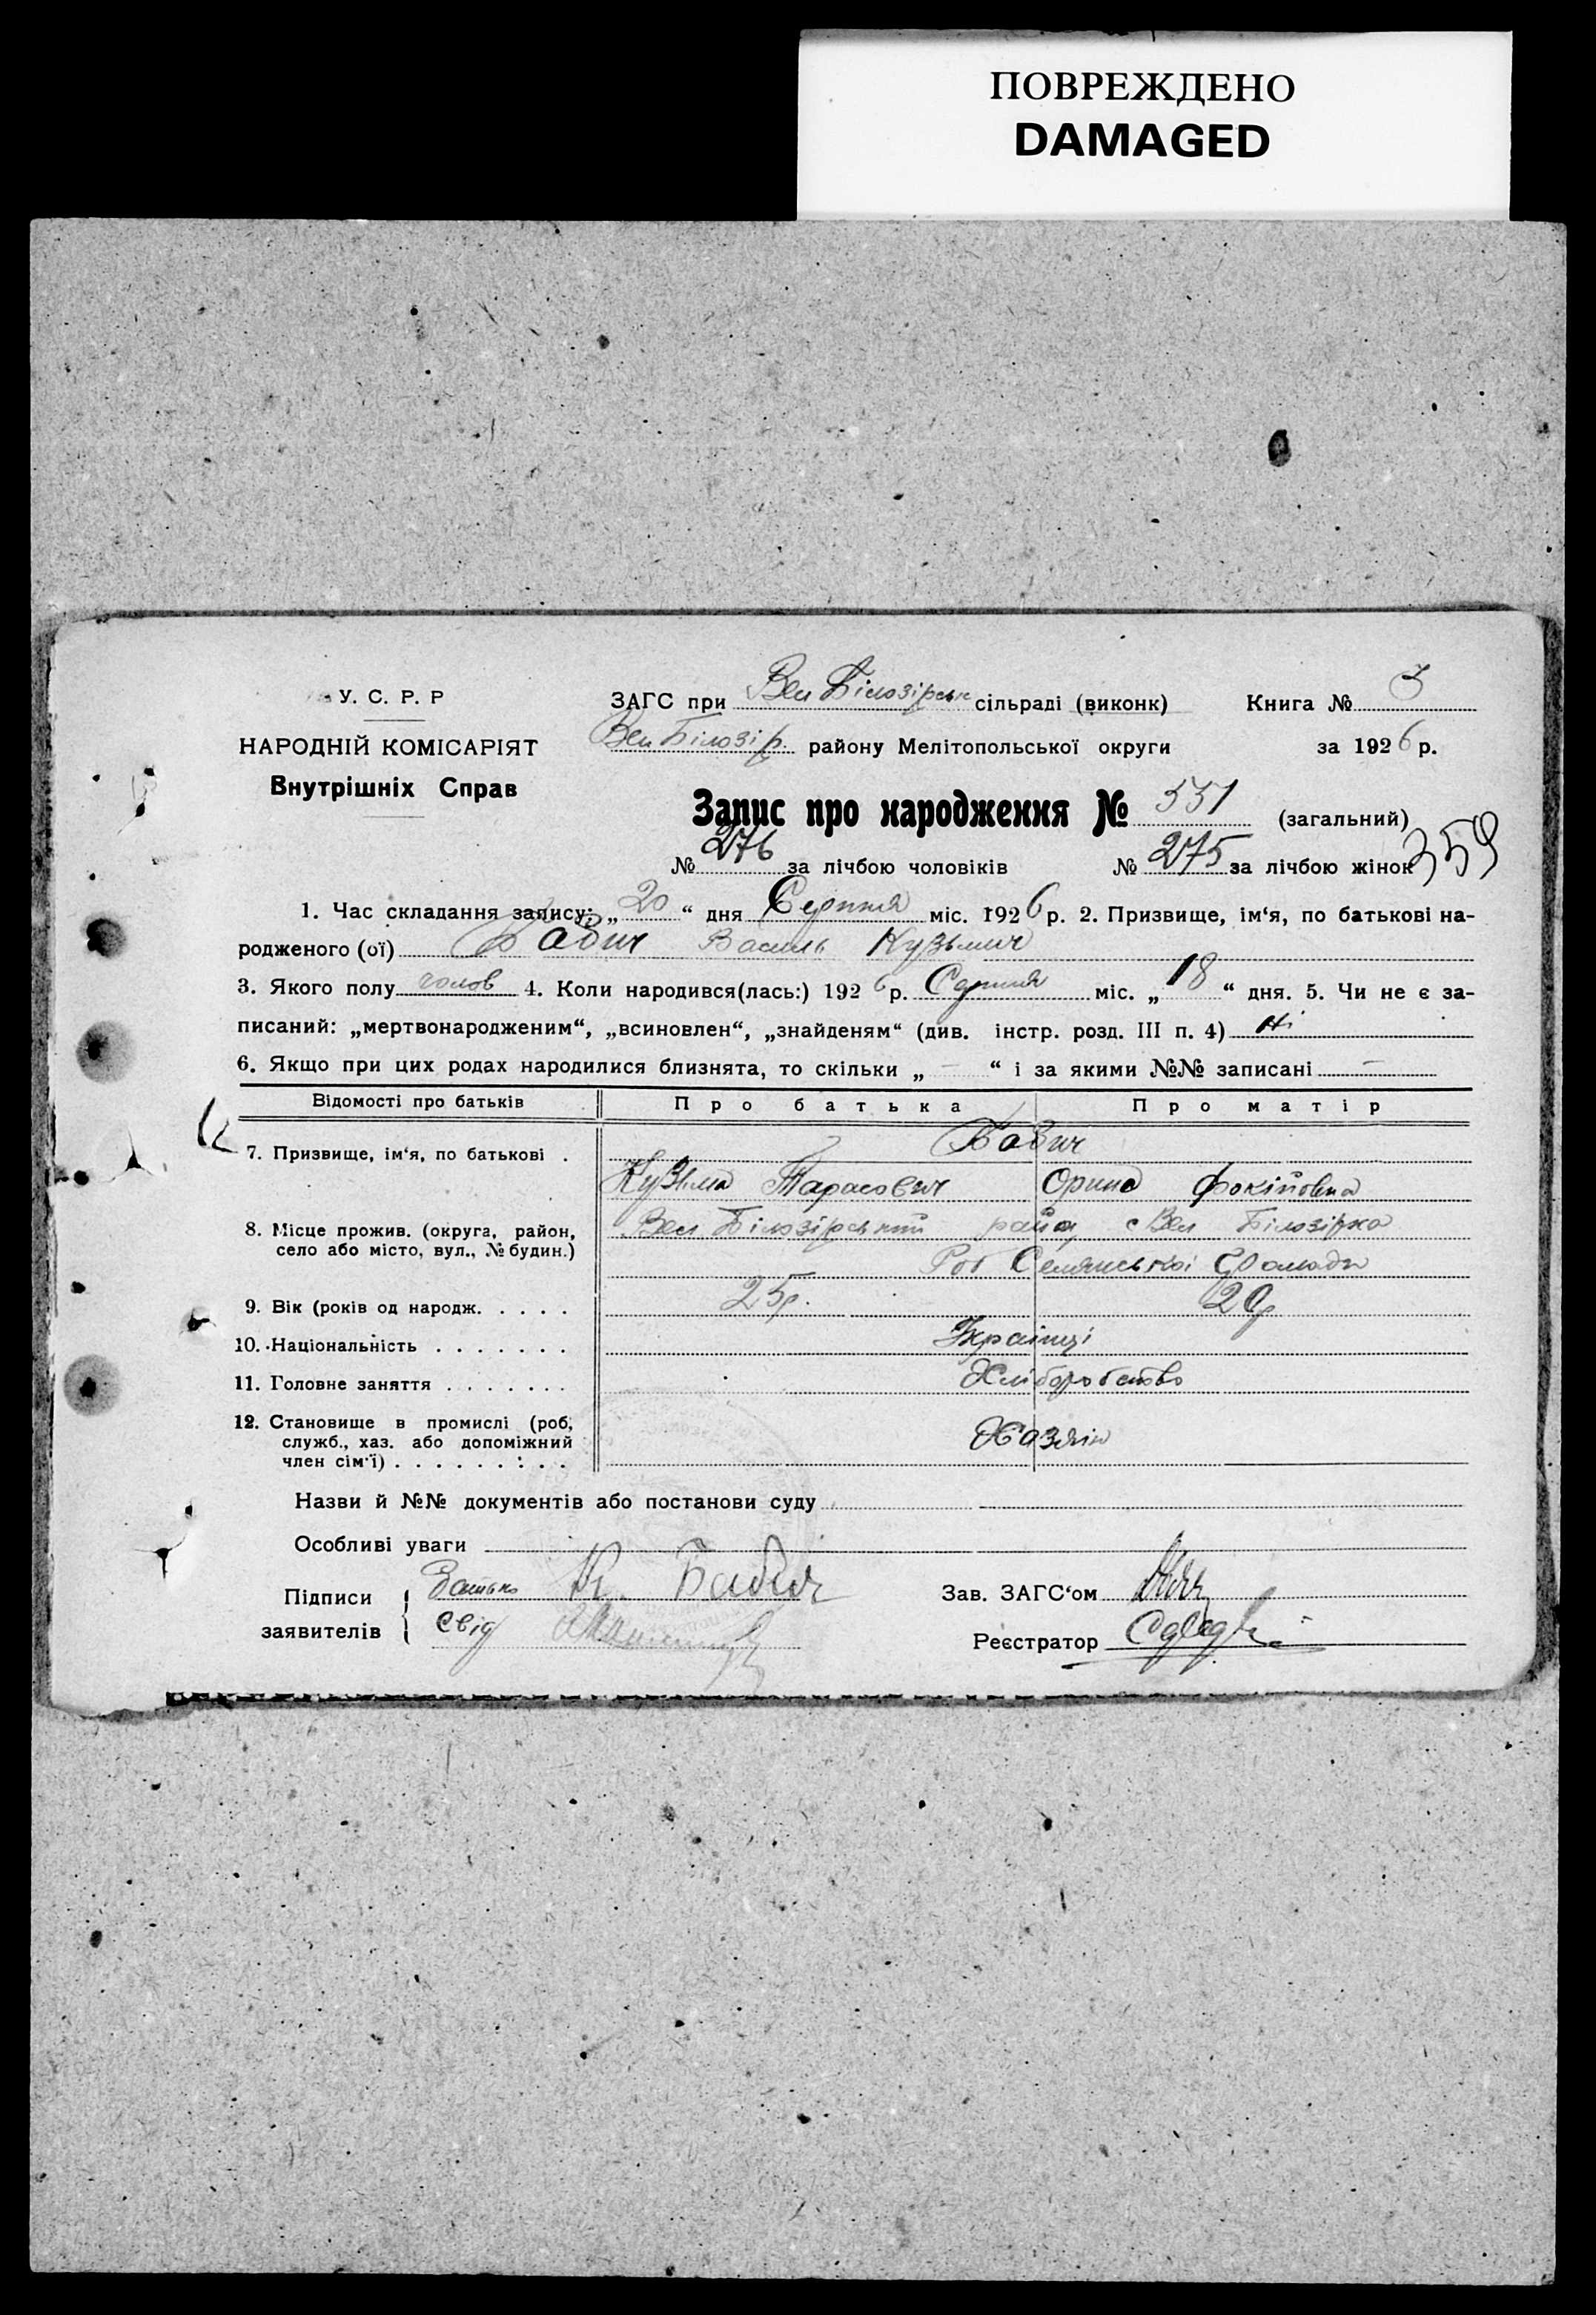 ПОВРЕЖДЕНО
DAMAGED
У. С. Р. Р
НАРОДНІЙ КОМІСАРІЯТ
Внутрішніх Справ
ЗАГС при Вел Білозірськ сільраді (виконк) Книга № 3
Вел Білозір. району Мелітопольської округи за 1926 р.
Запис про народження № 551 (загальний)
№ 276 за лічбою чоловіків № 275 за лічбою жінок 359
1. Час складання запису: „20“ дня Серпня міс. 1926 р. 2. Призвище, ім‘я, по батькові на-
родженого (ої) Бабич Василь Кузьмич
3. Якого полу чолов 4. Коли народився(лась:) 1926 р. Серпня міс. „18“ дня. 5. Чи не є за-
писаний: „мертвонародженим“, „всиновлен“, „знайденям“ (див. інстр. розд. III п. 4) Ні
6. Якщо при цих родах народилися близнята, то скільки „ — “ і за якими №№ записані —
Відомості про батьків Про батька Про матір
7. Призвище, ім‘я, по батькові . Бабич
Кузьма Тарасович Орина Фокіївна
8. Місце прожив. (округа, район, село або місто, вул., № будин.) Вел Білозірський район с Вел Білозірка
Селянської Громади
9. Вік (років од народж. . . . . 25р. 20р
10. Національність . . . . . . . Українці
11. Головне заняття . . . . . . . Хліборобство
12. Становище в промислі (роб,
служб., хаз. або допоміжний Хазяїн
член сім‘ї) . . . . . . . . .
Назви й №№ документів або постанови суду
Особливі уваги
Підписи Батько К. Бабич Зав. ЗАГС‘ом
заявителів Свід Реєстратор